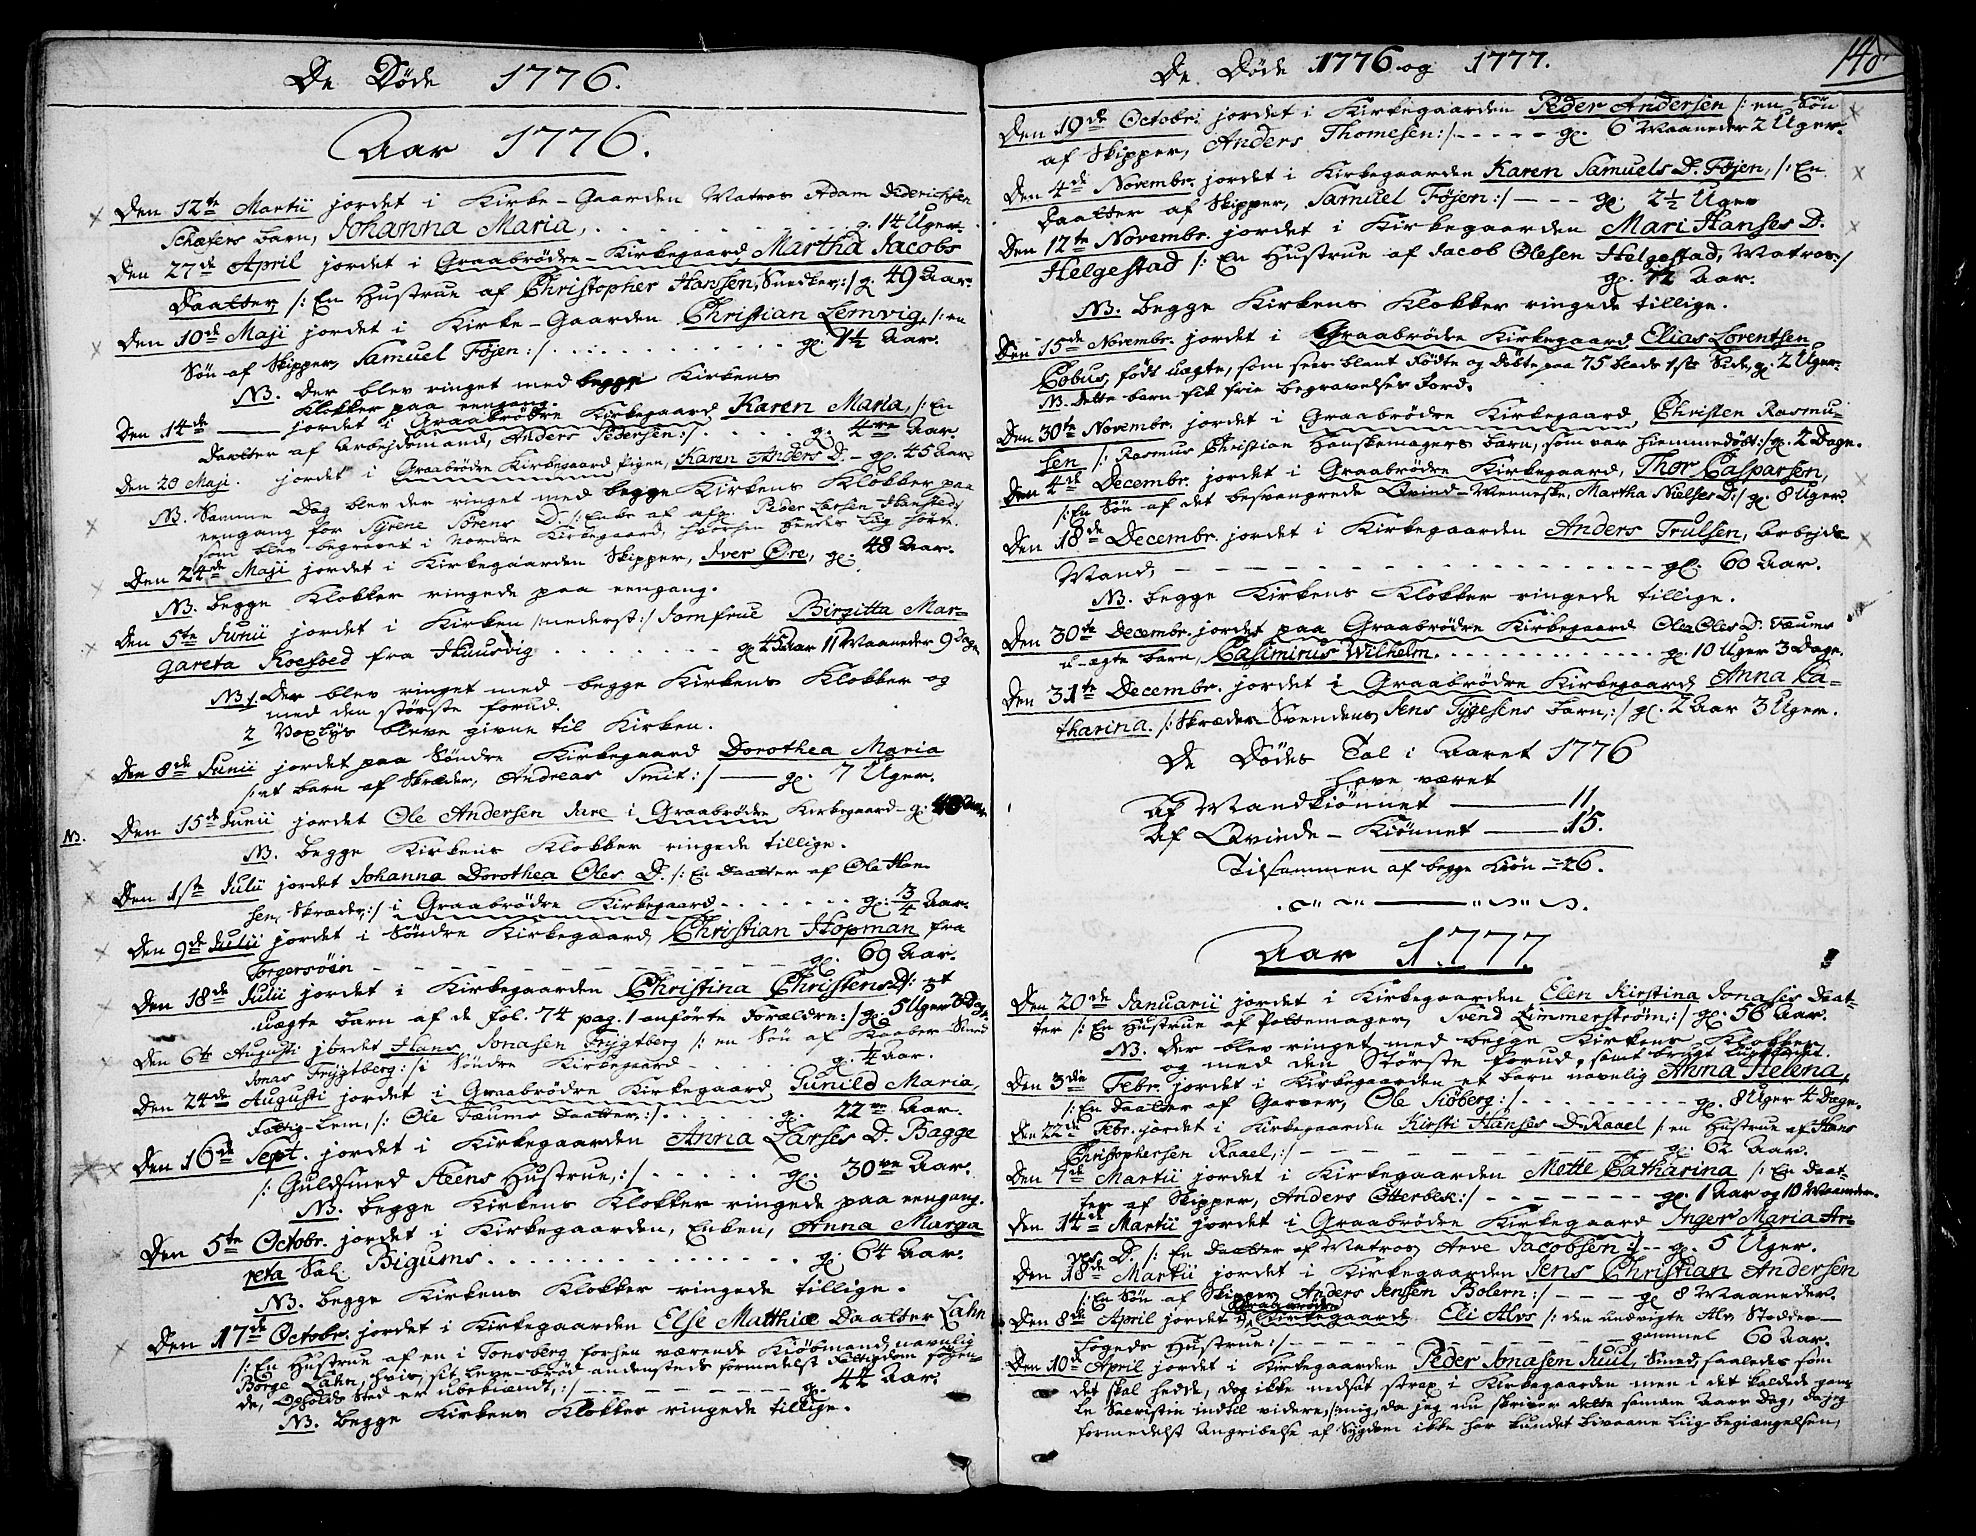 De Døde 1776.
Aar 1776.
Den 12te Martii jordet i Kirke-Gaarden Matros Adam Diderichsen
Schæfers barn, Johanna Maria, g. 14 Uger.
Den 27de April jordet i Graabrødre-Kirkegaard Martha Jacobs
Daatter, /: En Hustrue af Christopher Hanssen, Snedker :/ g. 49 Aar.
Den 10de Maji jordet i Kirke-Gaarden Christian Lemvig, /: en
Søn af Skipper, Samuel Føjen :/ gl. 1½ Aar.
NB. Der blev ringet med begge Kirkens
Klokker paa eengang.
Den 14de — jordet i Graabrødre Kirkegaard Karen Maria, /: En
Daatter af Arbejdsmand, Anders Pedersen :/ g. Aar.
Den 20 Maji. jordet i Graabrødre Kirkegaard Pigen, Karen Anders D. - gl. 45 Aar
NB. Samme Dag blev der ringet med begge Kirkens Klokker paa
eengang for Syrene Sørens D. /: Enke af afg. Peder Larsen Hansted :/
som blev begravet i Nordre Kirkegaard, hvorhen hendes Liig hørte.
Den 24de Maji jordet i Kirkegaarden Skipper, Iver Øre, gl. 48 Aar.
NB. begge Klokker ringede paa eengang.
Den 5te Junii jordet i Kirken /:nederst:/ Jomfrue Birgitta Mar-
gareta Koefoed fra Huusvig gl. 45 Aar 11 Maaneder 9 Dage
NB 1. Der blev ringet med begge Kirkens Klokker og
med den største forud.
2 Voxlys bleve givne til Kirken.
Den 8de Junii jordet paa Søndre Kirkegaard Dorothea Maria
/: et barn af Skræder, Andreas Smit :/ — gl. 7 Uger.
NB. Den 15de Junii jordet Ole Andersen Aare i Graabrødre Kirkegaard - g.
NB. begge Kirkens Klokker ringede tillige.
Den 1ste Julii jordet Johanna Dorothea Oles D. /: En Daatter af Ole Han-
sen, Skræder, :/ i Graabrødre Kirkegaard gl. 3/4 Aar.
Den 9de Julii jordet i Søndre Kirkegaard Christian Hopman fra
Torgersøen gl. 69 Aar.
Den 18de Julii jordet i Kirkegaarden Christina Christens D /: et
uægte barn af de fol. 74 pag. 1 anførte Forældre :/ g. 5 Uger 3 Dage
Den 6te Augusti jordet Hans Jonasen Frygtberg /: en Søn af Kaaber Smed
Jonas Frygtberg :/ i Søndre Kirkegaard g. ¼ Aar.
Den 24de Augusti jordet i Graabrødre Kirkegaard Gunild Maria,
Fattig-Lem, /: Ole Faums Daatter, :/ g. 22 Aar.
Den 16de Sept. jordet i Kirkegaarden Anna Larses D. Bagge
/: Guldsmed Steens Hustrue, :/ gl. 30 Aar.
NB. begge Kirkens Klokker ringede paa eengang.
Den 5te Octobr. jordet i Kirkegaarden, Enken, Anna Marga
reta Sal. Bigums g. 64 Aar.
NB. begge Kirkens Klokker ringede tillige.
Den 17de Octobr. jordet i Kirkegaarden Else Matthiæ Daatter Lahn
/: En Hustrue af en i Tonsberg forhen værende Kiøbmand, navnlig
Børge Lahn, hvis sit leve-brød andensteds formedelst Fattigdom søgen-
de, Opholds Sted er ubekiendt, :/ gl. 44 Aar.
NB. begge Kirkens Klokker ringede tillige.
De Døde 1776 og 1777.
148.
Den 19de Octobr. jordet i Kirkegaarden Peder Andersen /: en Søn
af Skipper, Anders Thomesen :/ - - - - - gl. 6 Maaneder 2 Uger.
Den 4de Novembr. jordet i Kirkegaarden Karen Samuels D. Føjen, /: En
Daatter af Skipper, Samuel Føjen :/ - - - gl. 2½ Uger
Den 12te Novembr. jordet i Kirkegaarden Mari Hanses D.
Helgestad /: En Hustrue af Jacob Olesen Helgestad, Matros :/
gl. 72 Aar.
NB. begge Kirkens Klokker ringede tillige.
Den 15de Novembr. jordet i Graabrødre Kirkegaard Elias Lorentsen
Cobus, født uægte, som sees blant Fødte og Døbte paa 75 blads 1ste Side, g. 2 Uger.
NB. dette barn fik frie begravelses Jord.
Den 30te Novembr. jordet i Graabrødre Kirkegaard Christen Rasmu-
sen /: Rasmus Christian Handskemagers barn, som var hiemmedøbt :/ g. 2 Dage.
Den 4de Decembr. jordet i Graabrødre Kirkegaard, Thor Casparsen,
/: En Søn af det besvangrede Qvind-Menneske, Martha Nielses D :/ g. 8 Uger.
Den 18de Decembr. jordet i Kirkegaarden Anders Trulsen, Arbejds-
Mand, - - - gl. 60 Aar.
NB. begge Kirkens Klokker ringede tillige.
Den 30te Decembr. jordet paa Graabrødre Kirkegaard Olea Oles D. Faums
u-ægte barn, Casimirus Wilhelm. g. 10 Uger 3 Dage.
Den 31te Decembr. jordet i Graabrødre Kirkegaard Anna Ca-
tharina. /: Skræder-Svendens Jens Tygesens barn, :/ gl. 2 Aar 3 Uger.
De Dødes Tal i Aaret 1776
have været
Af Mandkiønnet —— 11
Af Qvinde-Kiønnet —— 15.
Tilsammen af begge Kiøn = 26.
Aar 1777.
Den 20de Januarii jordet i Kirkegaarden Elen Kirstina Jonases Daat-
ter /: En Hustrue af Pottemager, Svend Zimmerstrøm, :/ gl. 56 Aar.
NB. Der blev ringet med begge Kirkens Klokker
og med den Største forud, samt brugt
Den 3die Febr. jordet i Kirkegaarden et barn navnlig Anna Helena,
/: En Daatter af Garver, Ole Siøberg :/ g. 8 Uger 4 Dage.
Den 22de Febr. jordet i Kirkegaarden Kirsti Hanses D. Raael /: en Hustrue af Hans
Christophersen Raael, :/ gl. 62 Aar.
Den 7de Martii jordet i Kirkegaarden Mette Catharina /: En Daat-
ter af Skipper, Anders Otterbek :/ - - - gl. 1 Aar og 10 Maaneder.
Den 14de Martii jordet i Graabrødre Kirkegaard Inger Maria Ar-
ves D. /: En Daatter af Matros Arve Jacobsen :/ - - gl. 5 Uger.
Den 18de Martii jordet i Kirkegaarden Jens Christian Andersen
/: En Søn af Skipper Anders Jensen Bolern :/ - - - gl 8 Maaneder.
Den 8de April jordet i Graabrødre Kirkegaard Eli Alvs /: den undvigte Alv Stodder-
Fogeds Hustrue :/ - - - gammel 60 Aar.
Den 10de April jordet i Kirkegaarden Peder Jonasen Juul, Smed, saaledes som
det skal hedde, dog ikke nedsat strax i Kirkegaarden men i det kaldede gam-
le Sacristie indtil videre, /:mig, da jeg nu skriver dette samme Aars Dag, da jeg
formedelst Angribelse af Sygdom ikke har kundet bivaane Liig-begiængelsen,